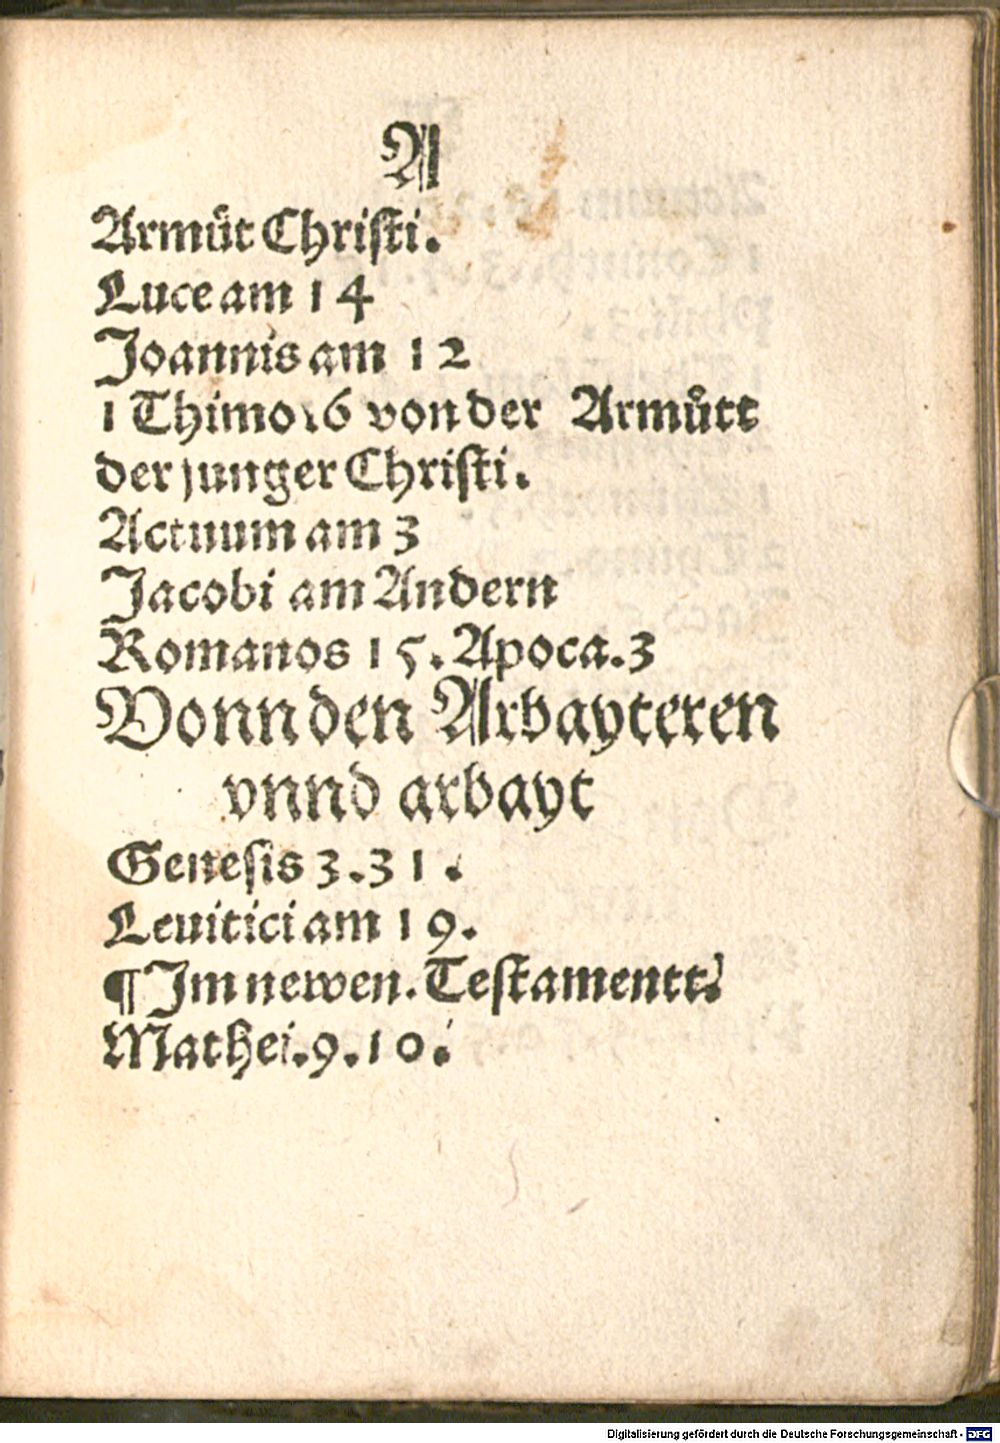 A
Armůt Christi.
Luce am 14
Joannis am 12
1 Thimo 16 von der Armůtt
der junger Christi.
Actuum am 3
Jacobi am Andern
Romanos 15. Apoca. 3
Vonn den Arbayteren
vnnd arbayt
Genesis 3. 31.
Leuitici am 19.
¶ Jm newen. Testamentt.
Mathei. 9. 10.
Digitalisierung gefördert durch die Deutsche Forschungsgemeinschaft - DFG